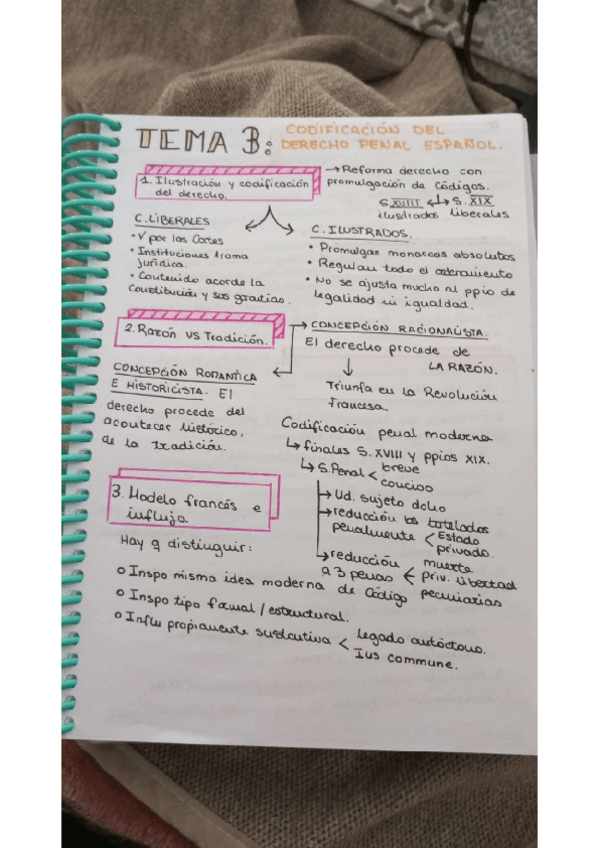 TEMA 3:
CODIFICACIÓN DEL
DERECHO PENAL ESPAÑOL.
1. Ilustración y codificación
del derecho.
→Reforma derecho con
promulgación de Códigos.
S.XVIII ↔ S.XIX
ilustrados liberales
C.LIBERALES
• V por las Cortes
• Instituciones trama
jurídica.
• Contenido acorde la
Constitución y sus garantías.
C. ILUSTRADOS.
• Promulgar monarcas absolutos
• Regulan todo el ordenamiento
• No se ajusta mucho al ppio de
legalidad ni igualdad.
2. Razón VS Tradición.
CONCEPCIÓN RACIONALISTA.
El derecho procede de
LA RAZÓN.
↓
Triunfa en la Revolución
Francesa.
CONCEPCIÓN ROMANTICA
E HISTORICISTA. El
derecho procede del
acontecer histórico,
de la tradición.
Codificación penal moderna
↳ finales S. XVIII y ppios XIX.
↳ S.Penal < breve
conciso
→ Ud. sujeto dcho
→ reducción bs tutelados
penalmente < Estado
privado.
→ reducción
a 3 penas < muerte
priv. libertad
pecuniarias
3. Modelo francés e
influjo.
Hay q distinguir:
o Inspo misma idea moderna de Código
o Inspo tipo formal / estructural.
o Influ propiamente sustantiva < legado autóctono.
Ius commune.